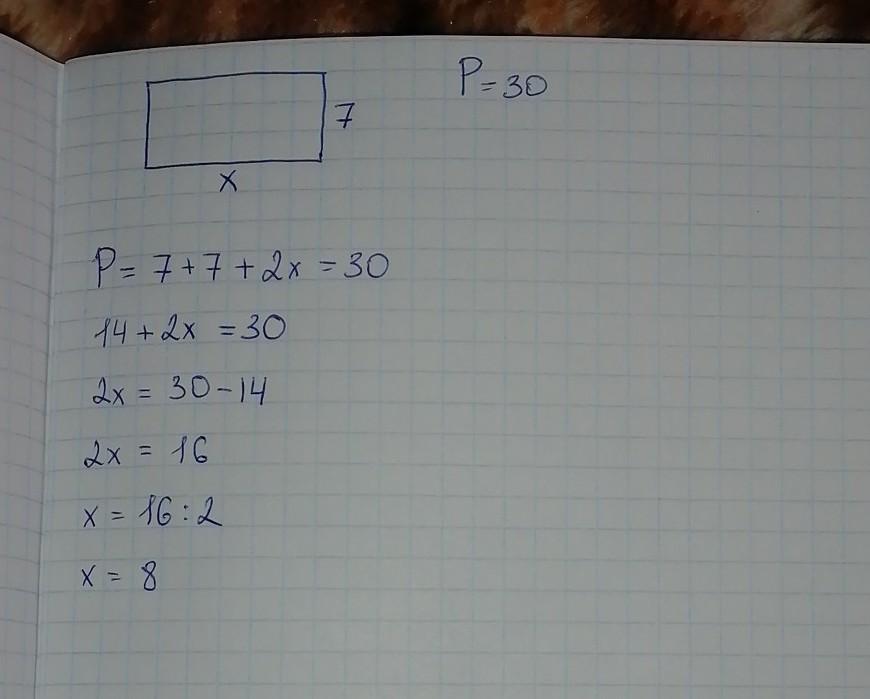 P=30
7
x
P= 7+7+2x=30
14+2x=30
2x= 30-14
2x = 16
x = 16:2
x = 8